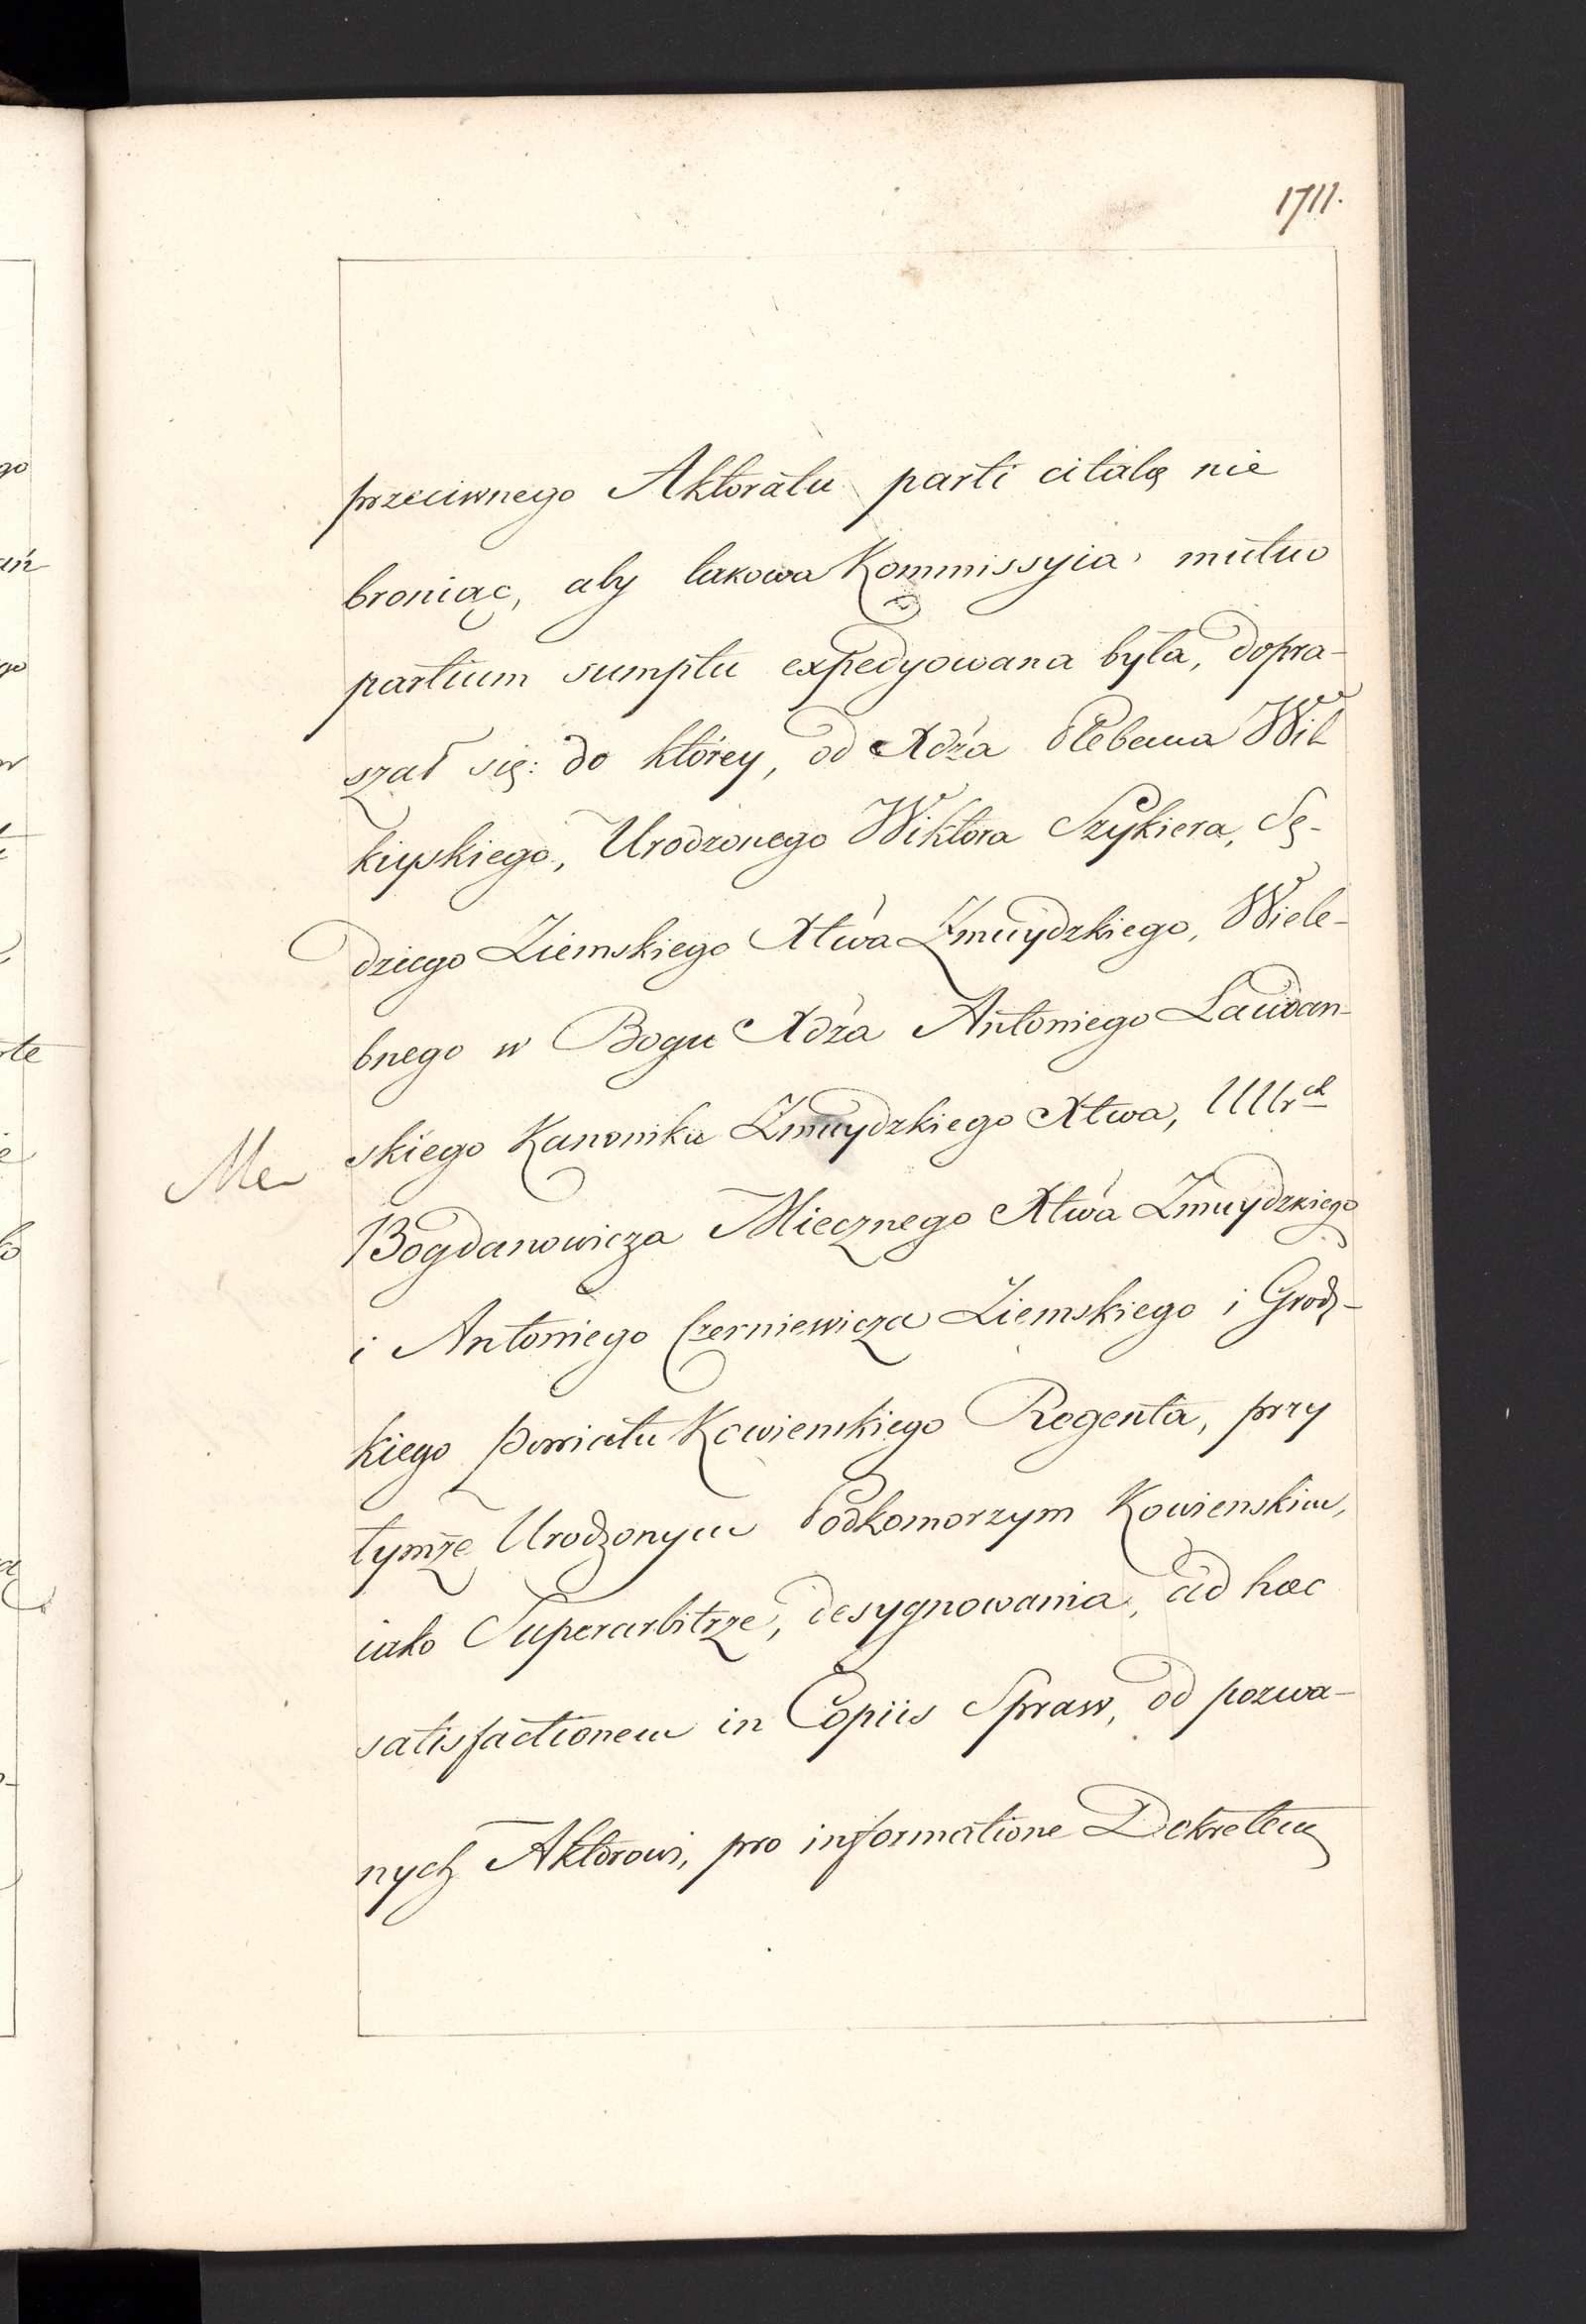 1711.
przeciwnego Aktoratu parti citatę nie
broniąc, aby takowa Kommissyia mutuo
partium sumptu expedyowana była, dopra-
szał się: do którey, od Xdźa Plebana Wil
kiyskiego, Urodzonego Wiktora Szykiera, Sę-
dziego Ziemskiego Xtwa Zmuydzkiego, Wiele-
bnego w Bogu Xdźa Antoniego Lawdan-
skiego Kanonika Zmuydzkiego Xtwa, UUr<sup>ch</sup>
Bogdanowicza Miecznego Xtwa Zmuydzkiego
i Antoniego Czerniewicza Ziemskiego i Grodz-
kiego powiatu Kowienskiego Regenta, przy
tymże Urodzonym Podkomorzym Kowienskim,
iako Superarbitrze, desygnowania, ad hac
satisfactionem in Copiis Spraw, od pozwa-
nych Aktorowi, pro informatione Dekretem